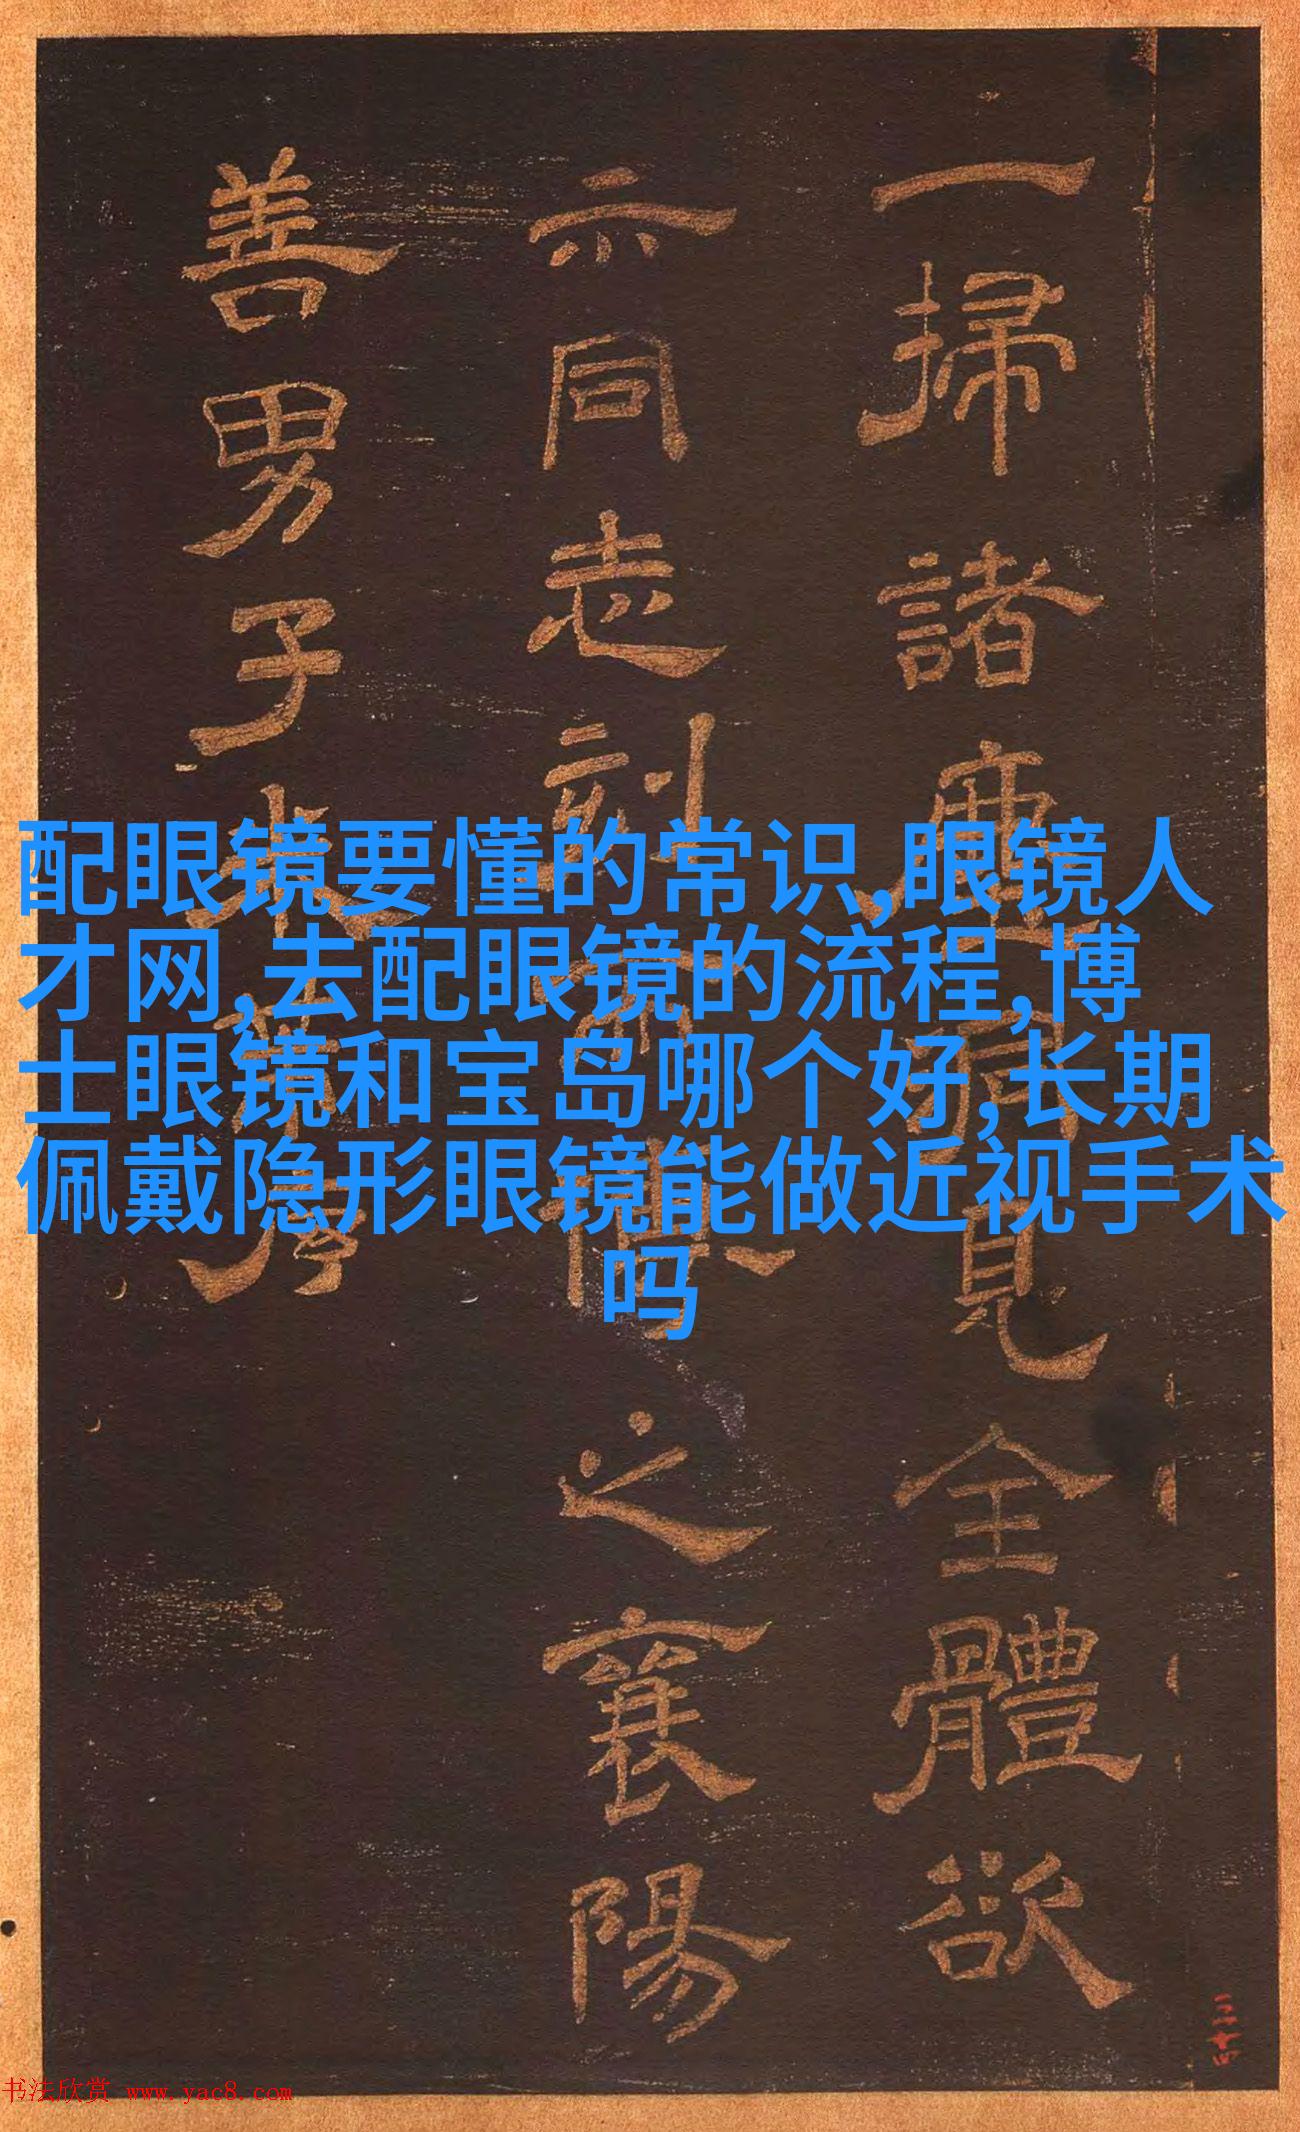 配眼镜要懂的常识,眼镜人
才网,去配眼镜的流程,博
士眼镜和宝岛哪个好,长期
佩戴隐形眼镜能做近视手术
吗
一掃諸塵見全體欲
示同志刻之襄陽
善男子
三十四
书法欣赏 www.yac8.com